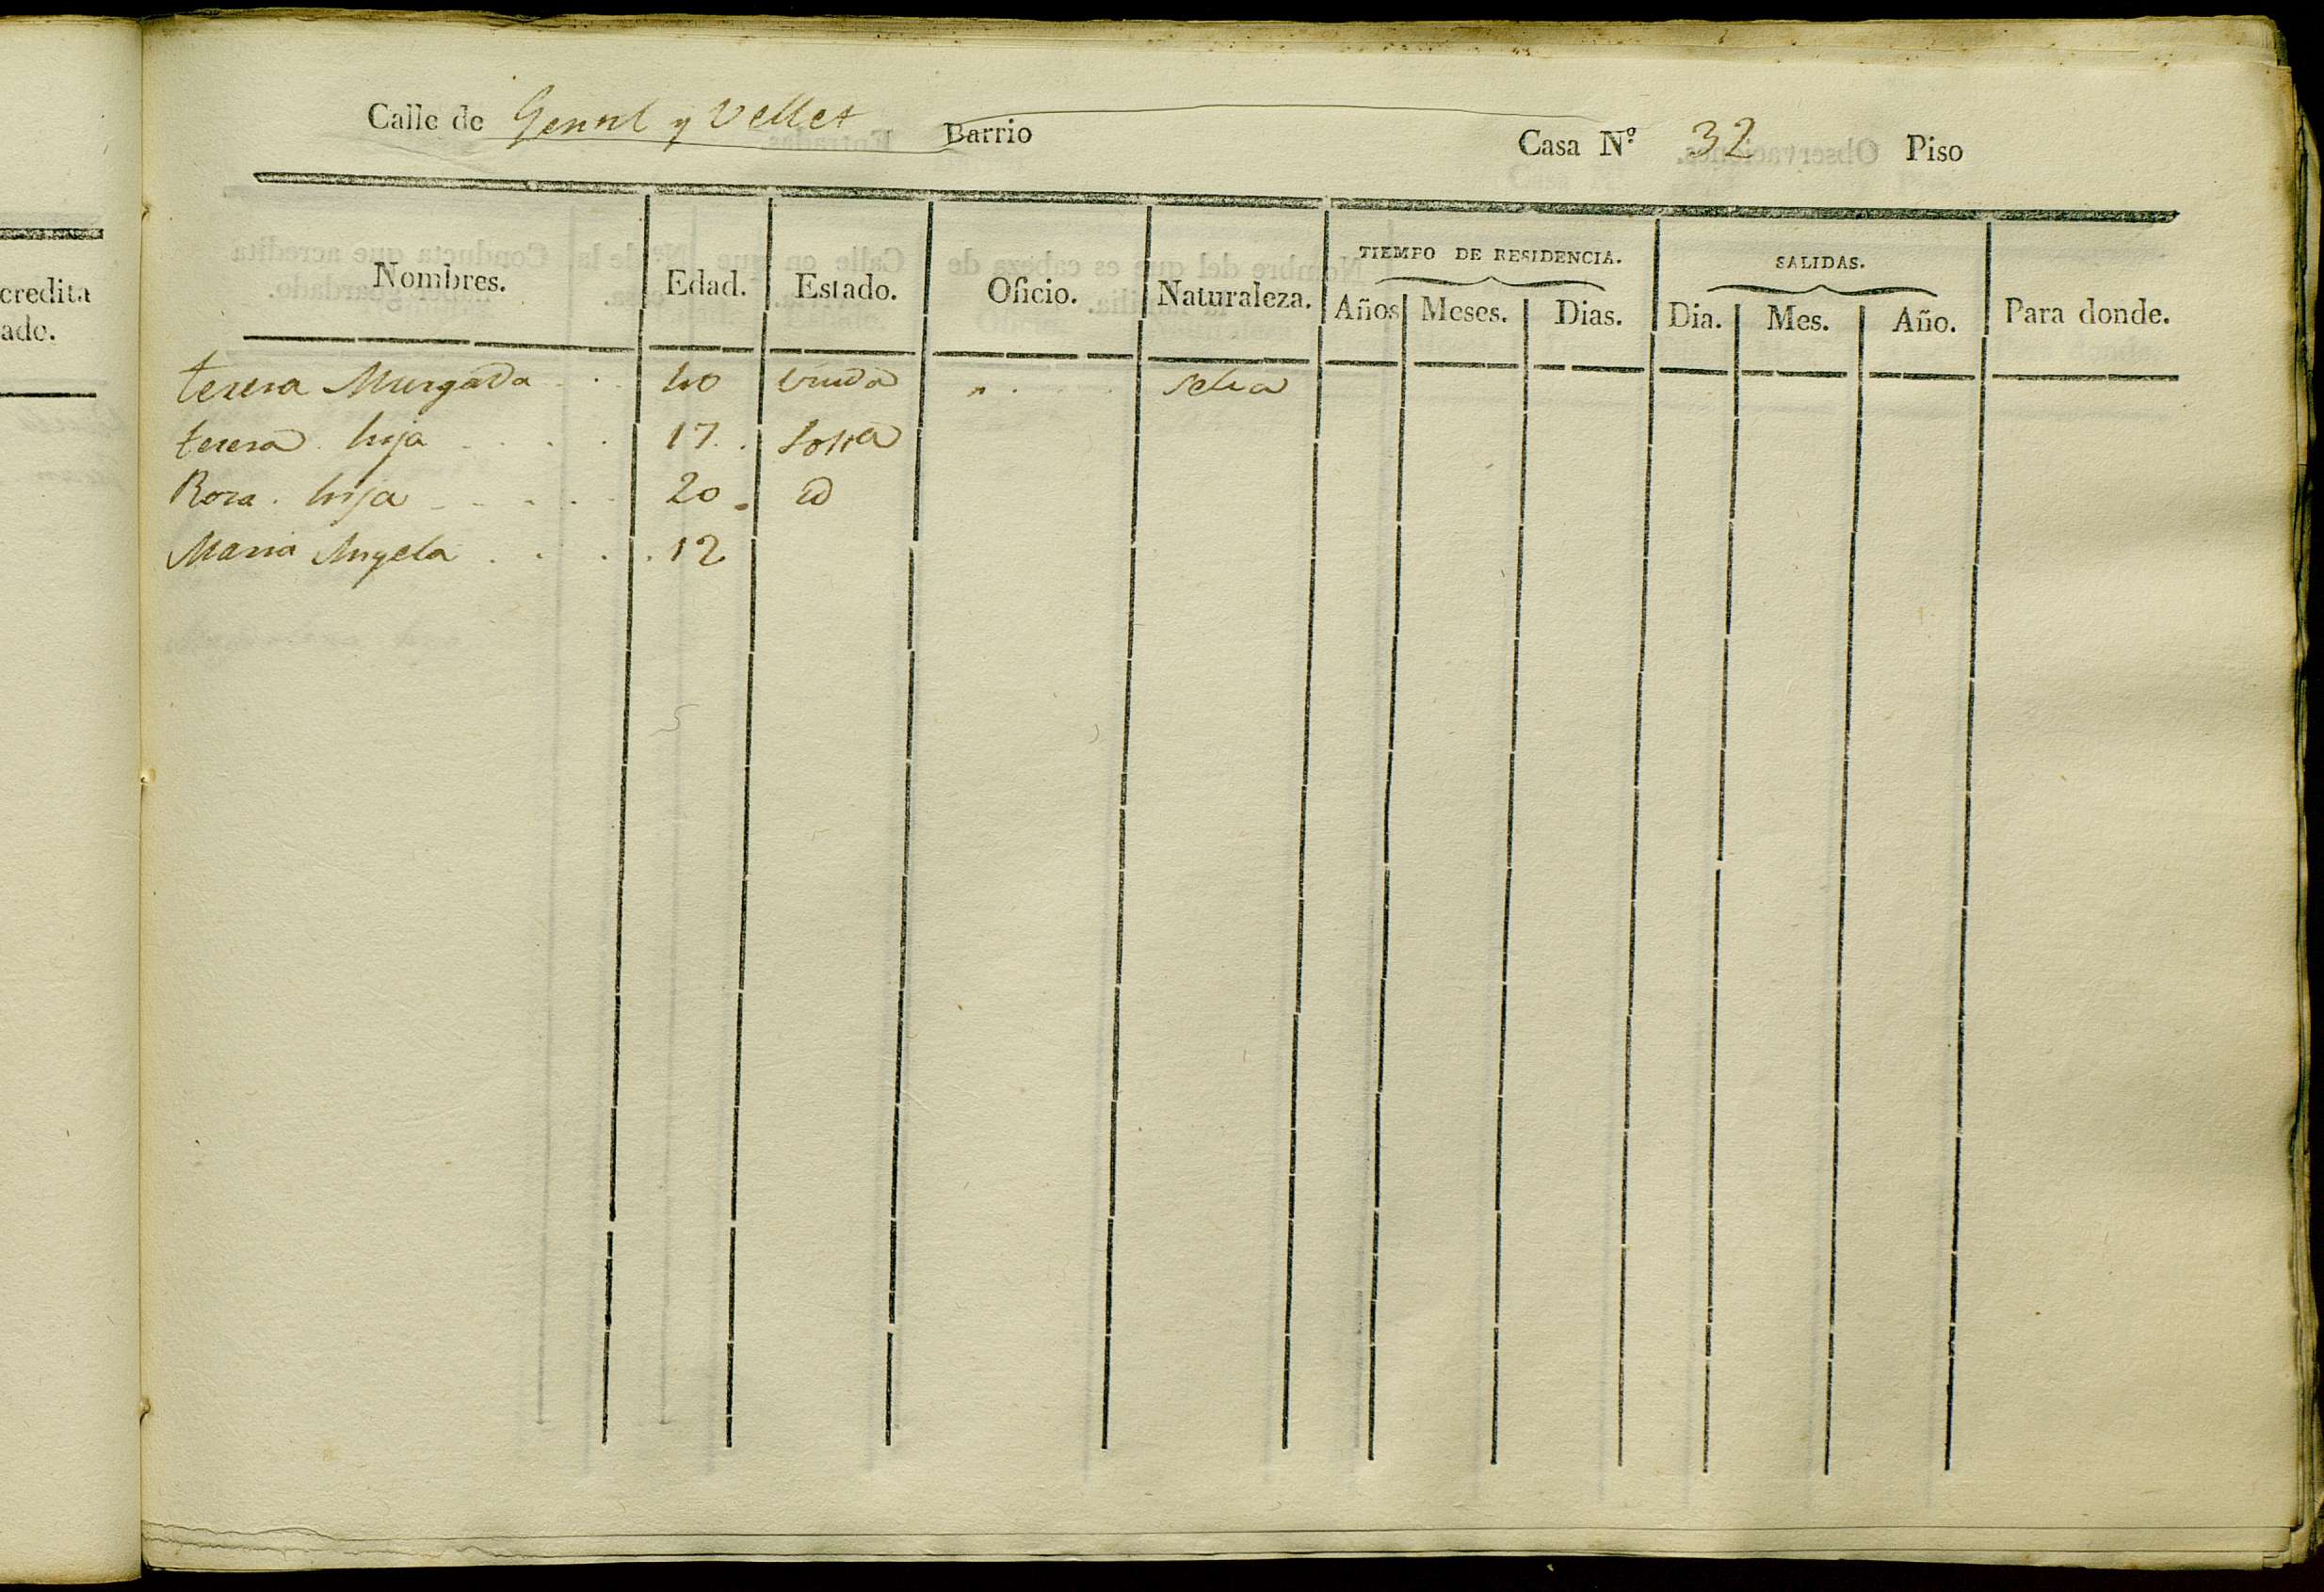 credita
ado.
Calle de y Vellet Barrio Casa Nº 32 Piso
Nombres. Edad. Estado. Oficio. Naturaleza. TIEMPO DE RESIDENCIA. Años Meses. Dias. SALIDAS. Dia. Mes. Año. Para donde.
teresa Murgada 40 viuda " selva
teresa hija 17 soltra
Rosa hija 20 id
Maria Angela 12